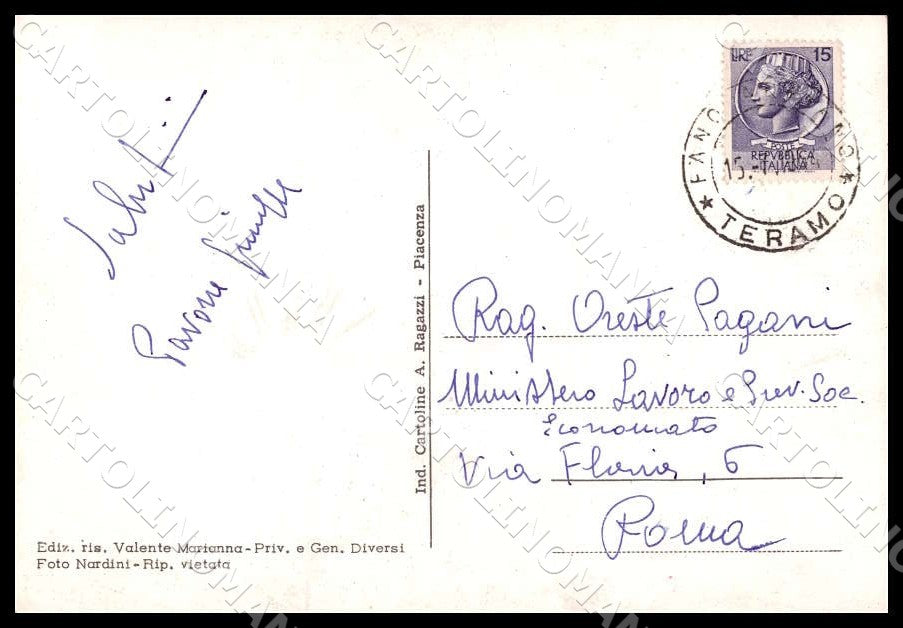 Saluti
Pavone
LIRE 15
POSTE
REPVBBLICA
ITALIANA
FANO ANO
15.
★ TERAMO ★
Rag. Oreste Pagani
Ministero Lavoro e Prev. Soc.
Economato
Via Flavia, 6
Roma
Ind. Cartoline A. Ragazzi - Piacenza
Ediz. ris. Valente Marianna - Priv. e Gen. Diversi
Foto Nardini - Rip. vietata
CARTOLINOMANIA